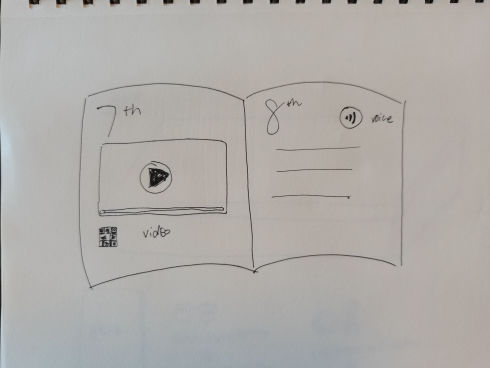 7th
video
8th
voice